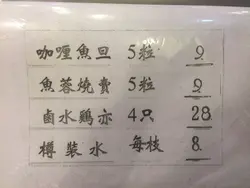 咖喱魚旦 5粒 9
魚蓉燒賣 5粒 9
鹵水鷄亦 4只 28
樽裝水 每枝 8